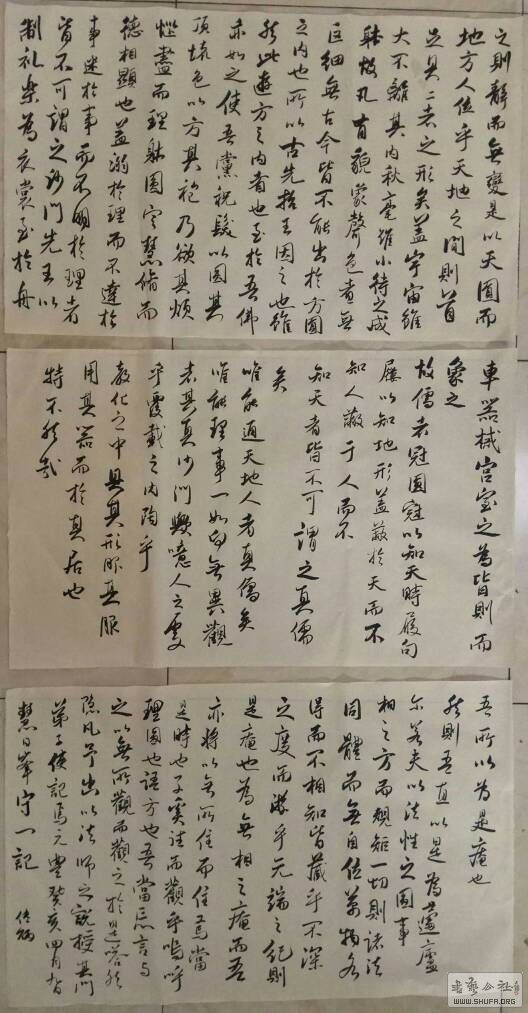 之則靜而無變是以天圓而
地方人位乎天地之間則首
足具二者之形矣蓋宇宙雖
大不離其內秋毫雖小待之成
體故凡有貌象聲色者無
巨細無古今皆不能出於方圓
之內也所以古先哲王因之也雖
然此遊方之內者也至於吾佛
亦如之使吾黨祝髮以圓其
頂壞色以方其袍乃欲其煩
惱盡而理體圓定慧脩而
德相顯也蓋溺於理而不達於
事迷於事而不明於理者
皆不可謂之沙門先王以
制礼樂為衣裳至於舟
車器械宮室之為皆則而
象之
故儒者冠圓冠以知天時履句
屨以知地形蓋蔽於天而不
知人蔽于人而不
知天者皆不可謂之真儒
矣
唯能通天地人者真儒矣
唯能理事一如向無異觀
者其真沙門歟噫人之處
乎覆載之內陶乎
教化之中具其形服其服
用其器而於其居也
特不然哉
吾所以為是庵也
然則吾直以是為蘧廬
尔若夫以法性之圓事
相之方而規矩一切則諸法
同體而無自位萬物各
得而不相知皆藏乎不深
之度而遊乎无端之紀則
是庵也為無相之庵而吾
亦將以無所住而住焉當
是時也子奚往而觀乎嗚呼
理圓也語方也吾當忘言与
之以無所觀而觀之於是嗒然
隐几予出以法師之說授其門
弟子使記焉元豐癸亥四月九日
慧日峯守一記
書藝公社
WWW.SHUFA.ORG